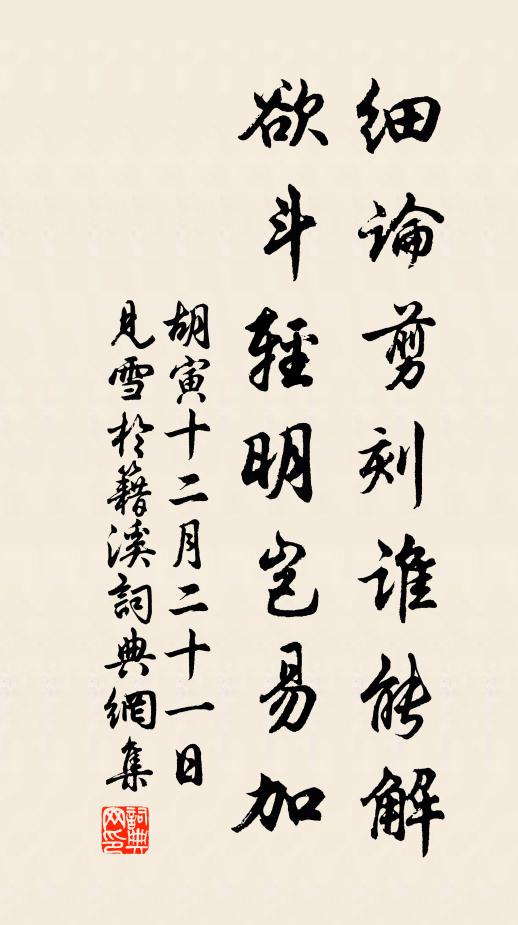 细论剪刻谁能解
欲斗轻明岂易加
胡寅十二月二十一日
见雪於籍溪词典网集
词典网印